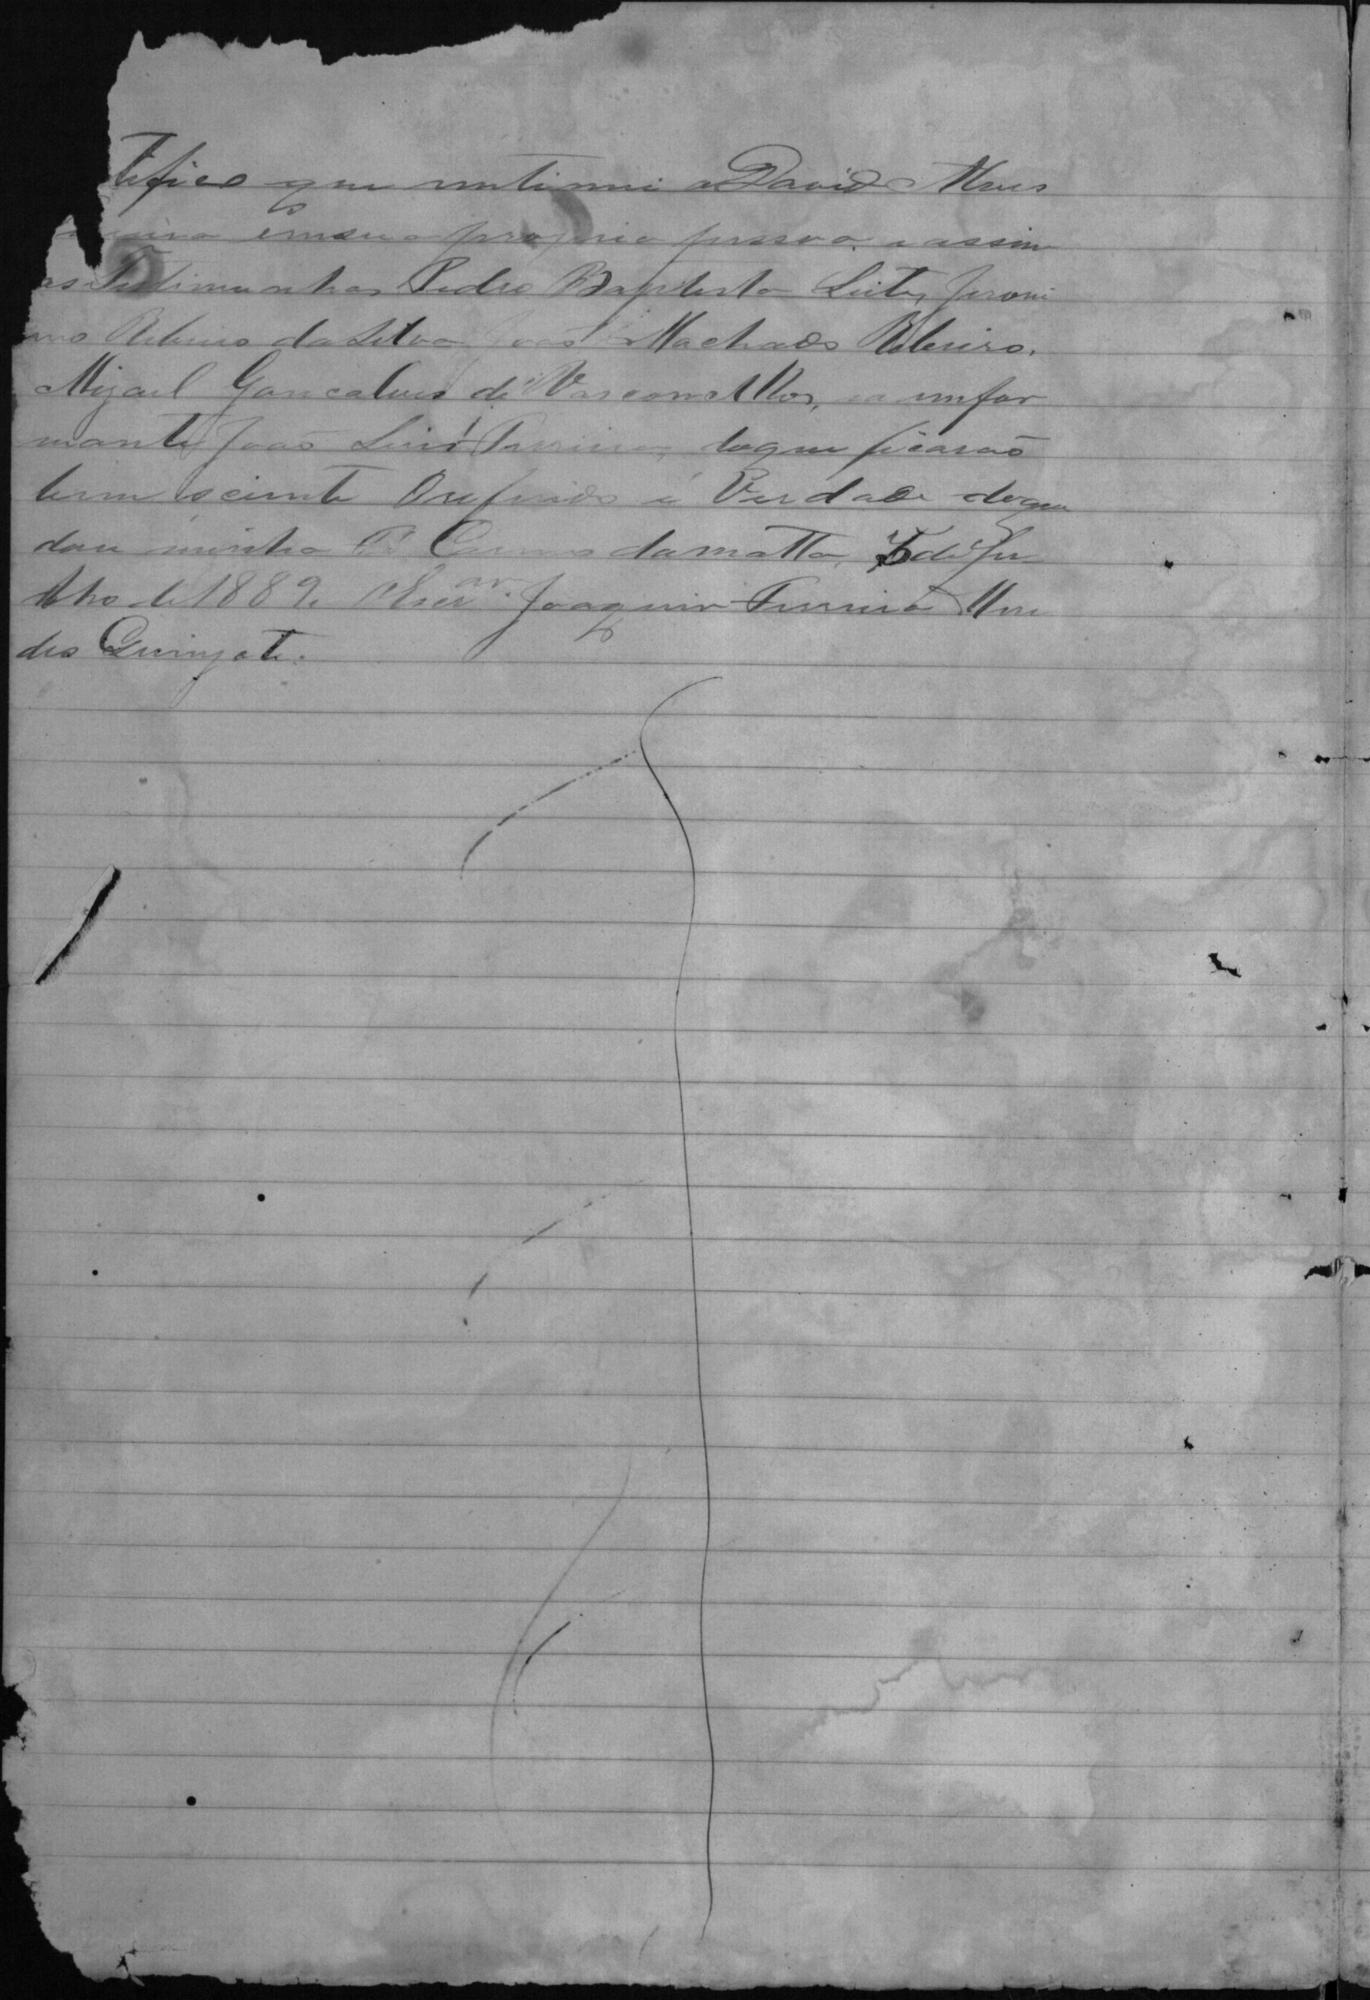 tefico que intimei a David Alves
em sua propria pessoa. e assim
as Testimunhas Pedro Baptista Leite, Jeroni
mo Ribeiro da Silva João Machado Ribeiro.
Mizael Goncalves de Vasconsellos, e a imfor
mante João Luis Ferreira, doque ficarão
bem sciente Oreferido é Verdade doque
dou minha Fé Carmo damatta, 5 de Ju
lho de 1889. OEscr.am Joaquim Ferreira Men
des